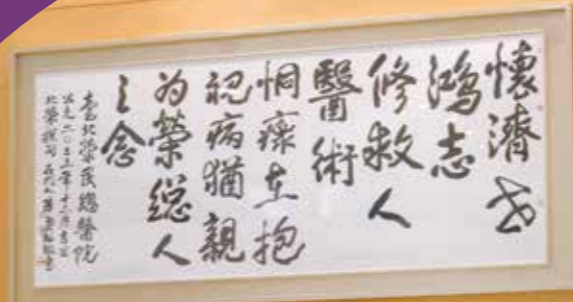 懷濟世
鴻志
修救人
醫術
恫瘝在抱
視病猶親
為榮總人
之念
臺北榮民總醫院